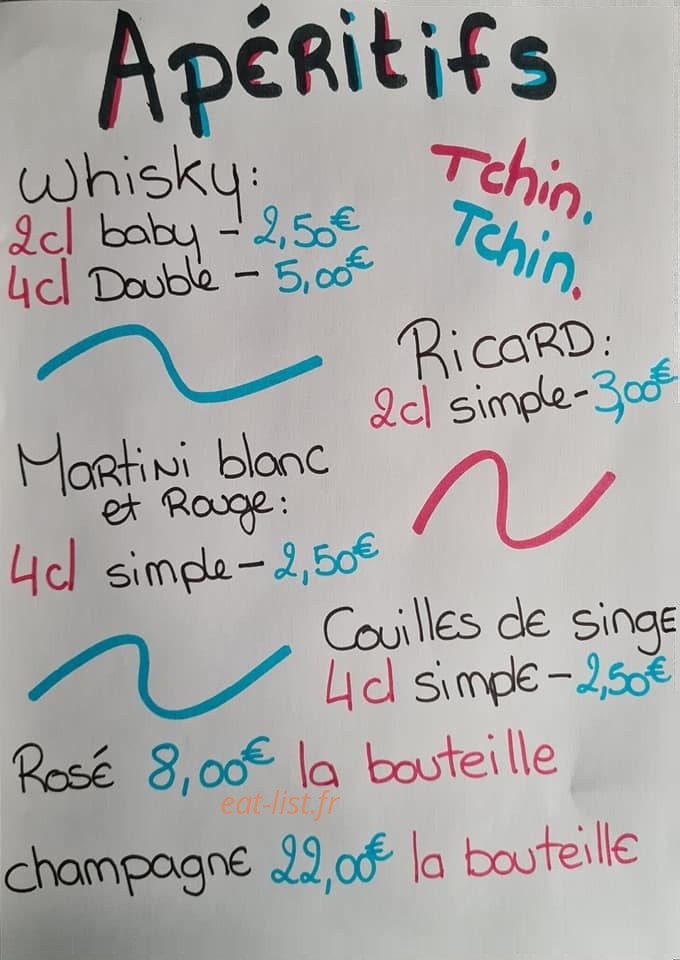 Apéritifs
Whisky:
2cl baby - 2,50€
4cl Double - 5,00€
Tchin.
Tchin.
Ricard:
2cl simple - 3,00€
Martini blanc
et Rouge:
4cl simple - 2,50€
Couilles de singe
4cl simple - 2,50€
Rosé 8,00€ la bouteille
eat-list.fr
champagne 22,00€ la bouteille